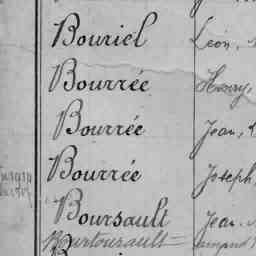 Bouriel Léon,
Bourrée Henry,
Bourrée Jean,
Bourrée Joseph,
Boursault Jean
Bourtourault